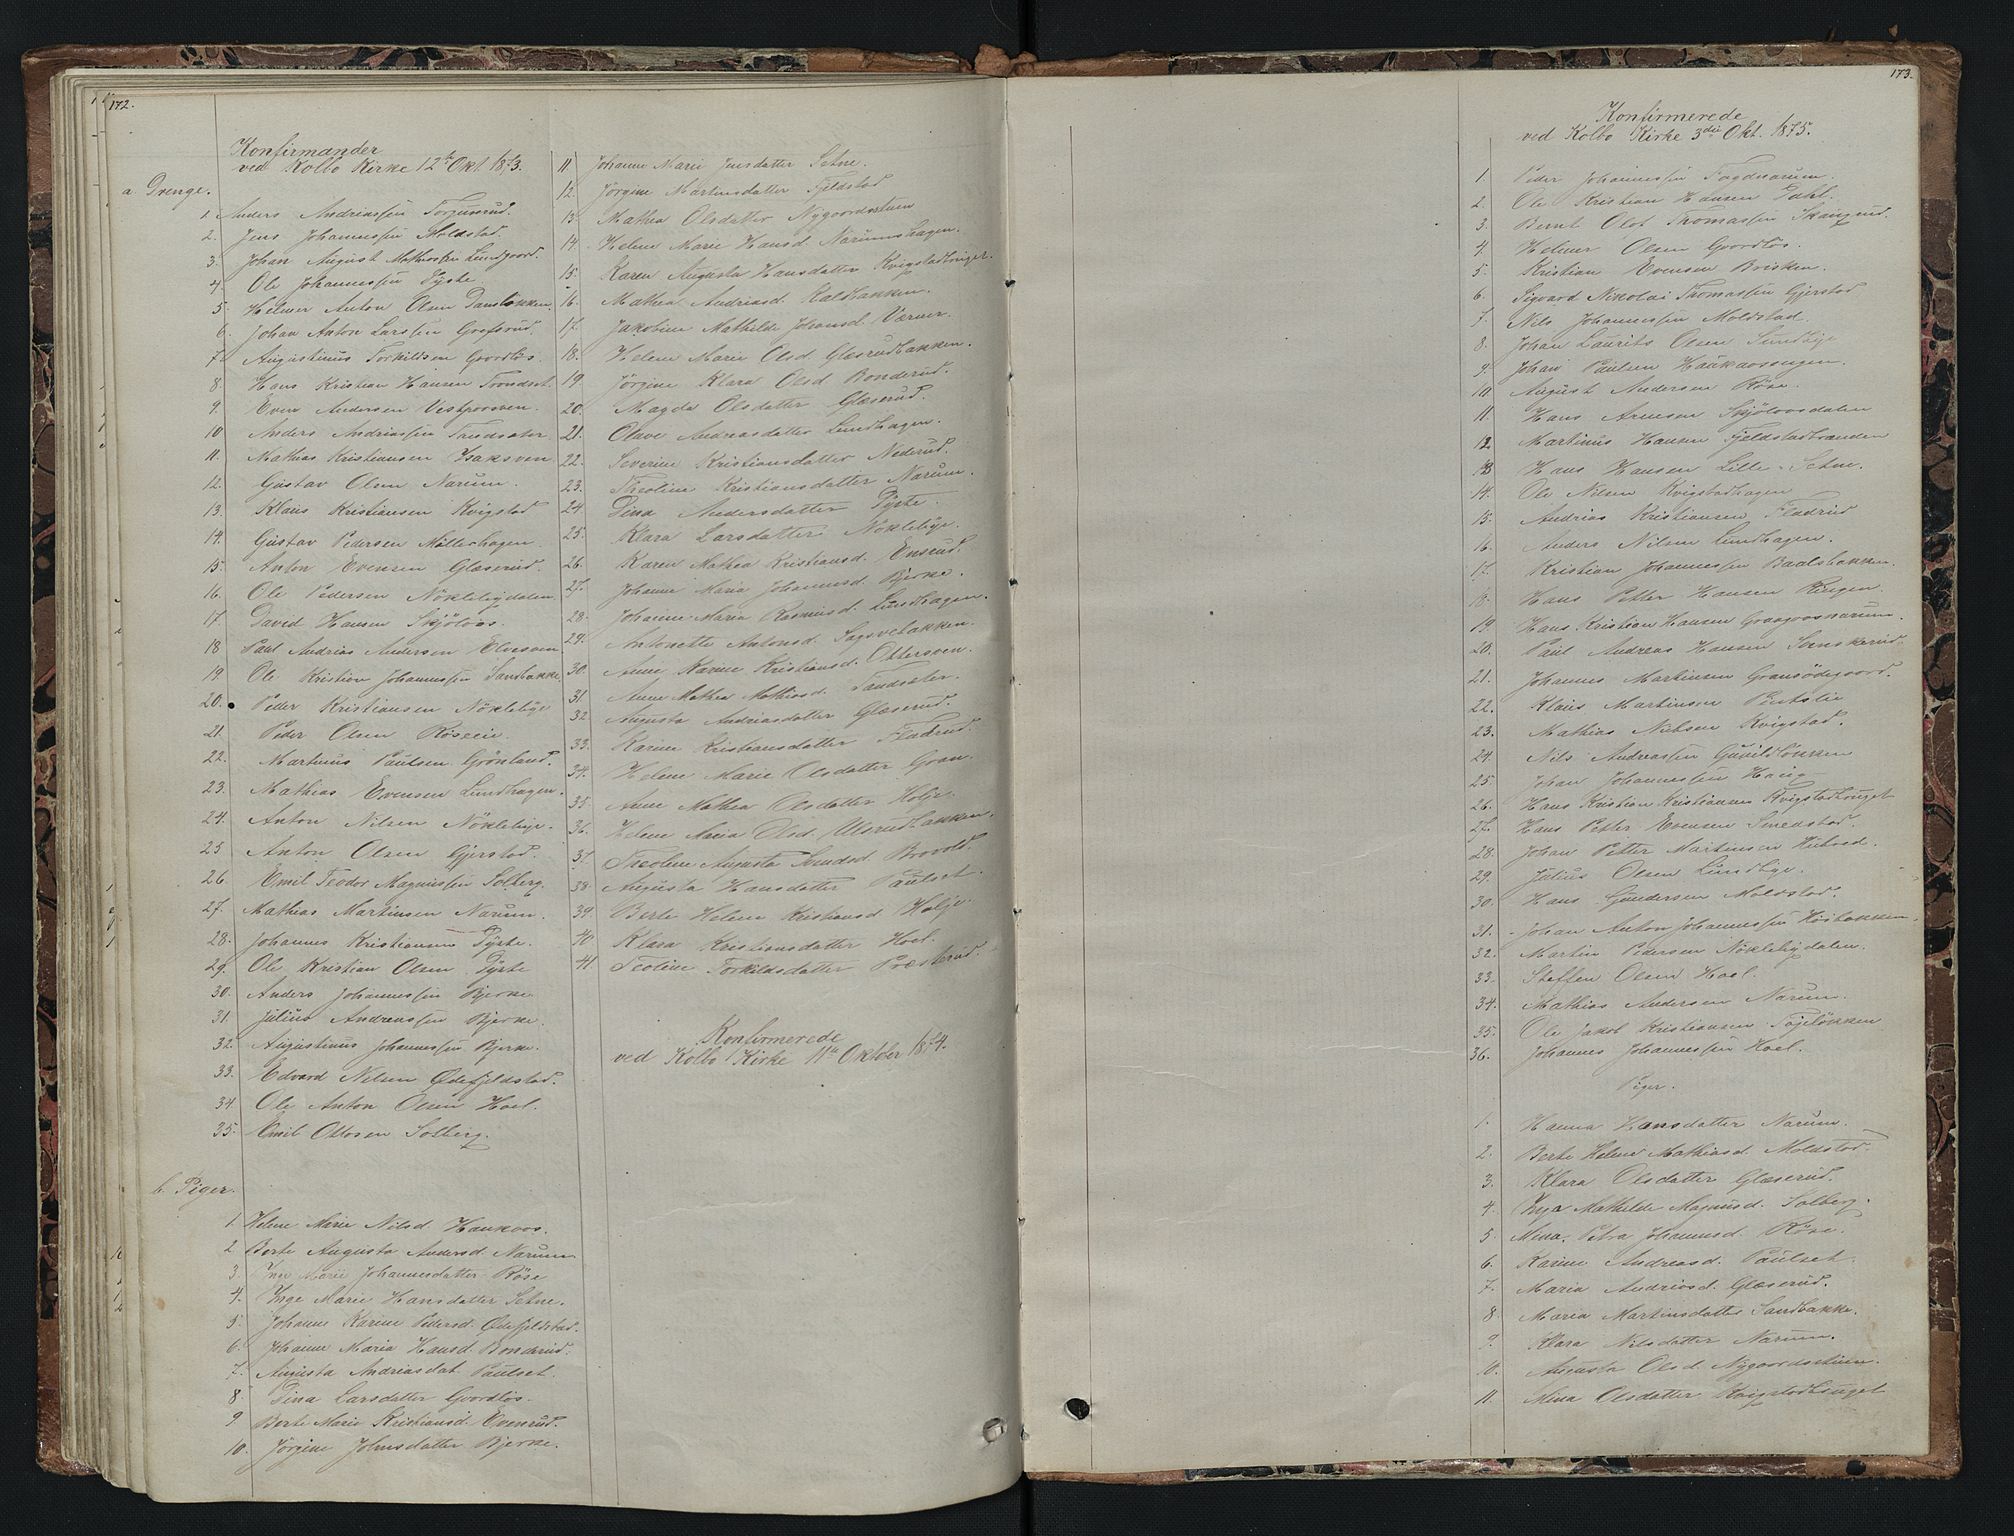 172.
Konfirmander
ved Kolbo Kirke 12te Okt. 1873.
a. Drenge.
1. Anders Andriassen Torgunrud.
2. Jens Johannessen Moldstad.
3. Johan August Mathiassen Lundgaard.
4. Ole Johannessen Tyste
5. Helmer Anton Olsen Dansløkken.
6. Johan Anton Larssen Grefsrud.
7. Augustinus Torkildsen Gvordløs.
8. Hans Kristian Hansen Trondset.
9. Even Andersen Vestproosven.
10. Anders Andriassen Trudsæter
11. Mathias Kristiansen Isaksven
12. Gustav Olsen Narum.
13. Klaus Kristiansen Kvigstad
14. Gustav Pedersen Møllerhagen.
15. Anton Evensen Glæserud.
16. Ole Pedersen Nøklebydalen
17. David Hansen Skjølaas.
18 Paul Andrias Andersen Elvesven.
19 Ole Kristian Johannessen Sandbakke.
20. Peder Kristiansen Nøklebye
21. Peder Olsen Røseie.
22. Martinus Paulsen Grønland.
23. Mathias Evensen Lundhagen.
24. Anton Nilsen Nøklebye.
25 Anton Olsen Gjerstad.
26. Emil Teodor Magnussen Solberg.
27. Mathias Martinsen Narum.
28. Johannes Kristiansen Tyste.
29. Ole Kristian Olsen Tyste
30. Anders Johannessen Bjerke
31. Julius Andreassen Bjerke.
32. Augustinus Johannessen Bjerke.
33. Edvard Nilsen Ødefjeldstad.
34. Ole Anton Olsen Hoel.
35. Emil Ottosen Solberg.
b. Piger.
1. Helene Marie Nilsd. Haukaas.
2. Berte Augusta Andersd. Narum
3. Inge Marie Johannesdatter Røse
4. Inge Marie Hansdatter Setne.
5. Johanne Karine Pedersd. Ødefjeldstad.
6. Johanne Maria Hansd. Bonderud.
7. Augusta Andriasdat. Paulset.
8. Dina Larsdatter Gvordløs.
9. Berte Marie Kristiansd. Evenrud.
10. Jørgine Johnsdatter Bjerke.
11. Johanne Marie Jensdatter Setne.
12. Jørgine Martinsdatter Fjeldstad
13. Mathea Olsdatter Nygaardsstuen
14. Helene Marie Hansd. Narumshagen.
15. Karen Augusta Hansdatter Kvigstadtruget.
16. Mathea Andriasd. Kalkakken.
17. Jakobine Mathilde Johansd. Værner.
18. Helene Marie Olsd. Glæserudbakken.
19. Jørgine Klara Olsd Bonderud.
20. Magda Olsdatter Glæserud.
21. Olave Andreasdatter Lundhagen.
22. Severine Kristiansdatter Nederud.
23. Theoline Kristiansdatter Narum.
24. Dina Andersdatter Tyste.
25. Klara Larsdatter Nøklebye.
26. Karen Mathea Kristiansd. Ensrud.
27. Johanne Maria Johannesd. Bjerke.
28. Johanne Marie Rasmusd. Lundhagen.
29. Antonette Antonsd. Sagsvebakken.
30. Anne Karine Kristiansd. Ottersven.
31. Anne Mathea Mathiasd. Sandsæter.
32. Augusta Andriasdatter Glæserud.
33. Karine Kristiansdatter Fladrud.
34. Helene Marie Olsdatter Gran.
35. Anne Mathea Olsdatter Holje.
36. Helene Maria Olsd. Ulsrudbakken.
37. Theoline Augusta Brovold.
38. Augusta Hansdatter Paulset.
39. Berte Helene Kristiansd. Holje.
40 Klara Kristiansdatter Hoel.
41. Teoline Torkildsdatter Præsterud.
Konfirmerede
ved Kolbo Kirke 11te Oktober 1874.
173.
Konfirmerede
ved Kolbo Kirke 3die Okt. 1875.
1. Peder Johannessen Fogdnarum.
2. Ole Kristian Hansen Dahl.
3. Bernt Olof Thomassen Skangrud.
4. Helmer Olsen Gvordløs.
5. Kristian Evensen Brisken.
6. Sigvard Nikolai Thomassen Gjerstad
7. Nils Johannessen Moldstad.
8. Johan Laurits Olsen Lundbye
9. Johan Paulsen Haukaassagen.
10 August Andersen Røse.
11 Hans Arnesen Skjølaasdalen
12 Martinus Hansen Fjeldstadbraaden
13 Hans Hansen Lille-Setne.
14. Ole Nilsen Kvigstadhagen
15. Andrias Kristiansen Fladrud
16. Anders Nilsen Lundhagen.
17. Kristian Johannessen Baalsbakken.
18. Hans Petter Hansen Ringen.
19 Hans Kristian Hansen Graagaasnarum.
20. Paul Andreas Hansen Sonskerud.
21. Johannes Martinsen Gransødegaard.
22. Klaus Martinsen Prestlie
23. Mathias Nielsen Kvigstad.
24. Nils Andreassen Gunildløkken
25 Johan Johannessen Haug
26. Hans Kristian Kristiansen Kvigstadtruget
27. Hans Petter Evensen Smedstad.
28. Johan Petter Martinsen Hultved.
29. Julius Olsen Lundbye.
30. Hans Gundersen Moldstad.
31. Johan Anton Johannessen Høibakken.
32. Martin Pedersen Nøklebydalen.
33. Steffen Olsen Hoel.
34. Mathias Andersen Narum.
35. Ole Jakob Kristiansen Tøjeløkken
36. Johannes Johannessen Hoel.
Piger.
1. Hanna Hansdatter Narum.
2. Berte Helene Mathiasd. Moldstad.
3. Klara Olsdatter Glæserud.
4. Inga Mathilde Magnusd. Solberg.
5. Mina Petra Johannesd. Røse.
6. Karine Andreasd. Paulset.
7. Maria Andriasd. Glæserud.
8. Maria Martinsdatter Sandbakke.
9. Klara Nilsdatter Narum.
10. Augusta Olsd. Nygaardsstuen.
11. Mina Olsdatter Kvigstadtruget